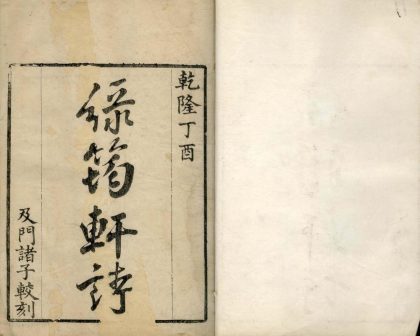 乾隆丁酉
綠筠軒詩
及門諸子較刻